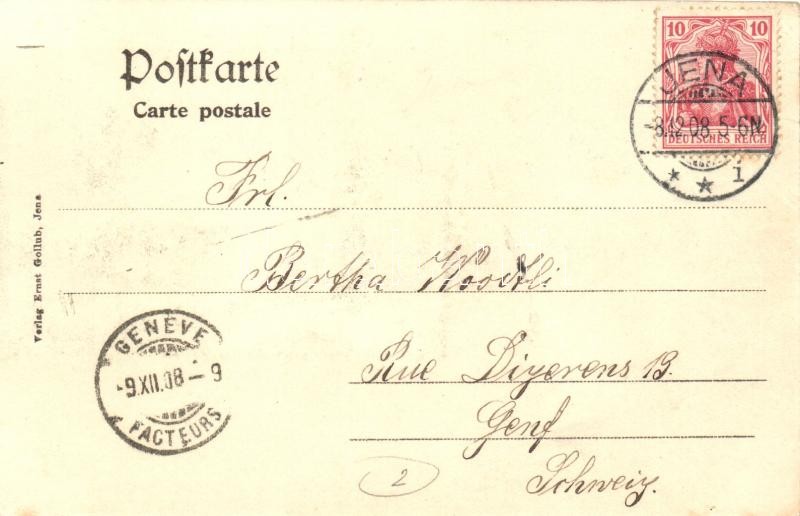 Postkarte
Carte postale
10 10
DEUTSCHES REICH
JENA
-8.12.08. 5-6N
* * 1
Frl.
Bertha
Rue Dizerens 13.
Genf
Schweiz.
GENÈVE
-9.XII.08-9
FACTEURS
Verlag Ernst Gollub, Jena
2